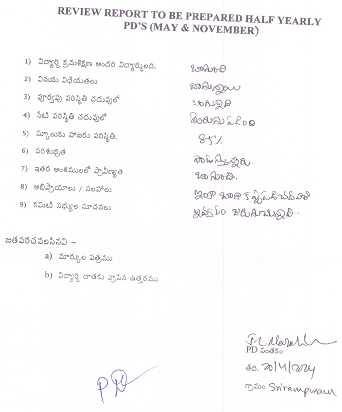 REVIEW REPORT TO BE PREPARED HALF YEARLY
PD'S (MAY & NOVEMBER)
1) విద్యార్థి క్రమశిక్షణ అందరి విద్యార్థులది. బాగుంది
2) వినయ విధేయతలు బాగున్నాయి
3) పూర్వపు పరిస్థితి చదువులో బాగున్నది
4) నేటి పరిస్థితి చదువులో మెరుగుపడింది
5) స్కూలుకు హాజరు పరిస్థితి. 85%
6) పరిశుభ్రత పాటిస్తున్నారు.
7) ఇతర అంశములలో ప్రావీణ్యత బాగుంది.
8) అభిప్రాయాలు / సలహాలు ఇంకా బాగా కష్టపడి చదవాలి
9) కమిటి సభ్యుల సూచనలు
జతపరచవలసినవి –
a) మార్కుల పత్రము
b) విద్యార్థి దాతకు వ్రాసిన ఉత్తరము
PD సంతకం
తేది. 20/4/2024
గ్రామం
PD